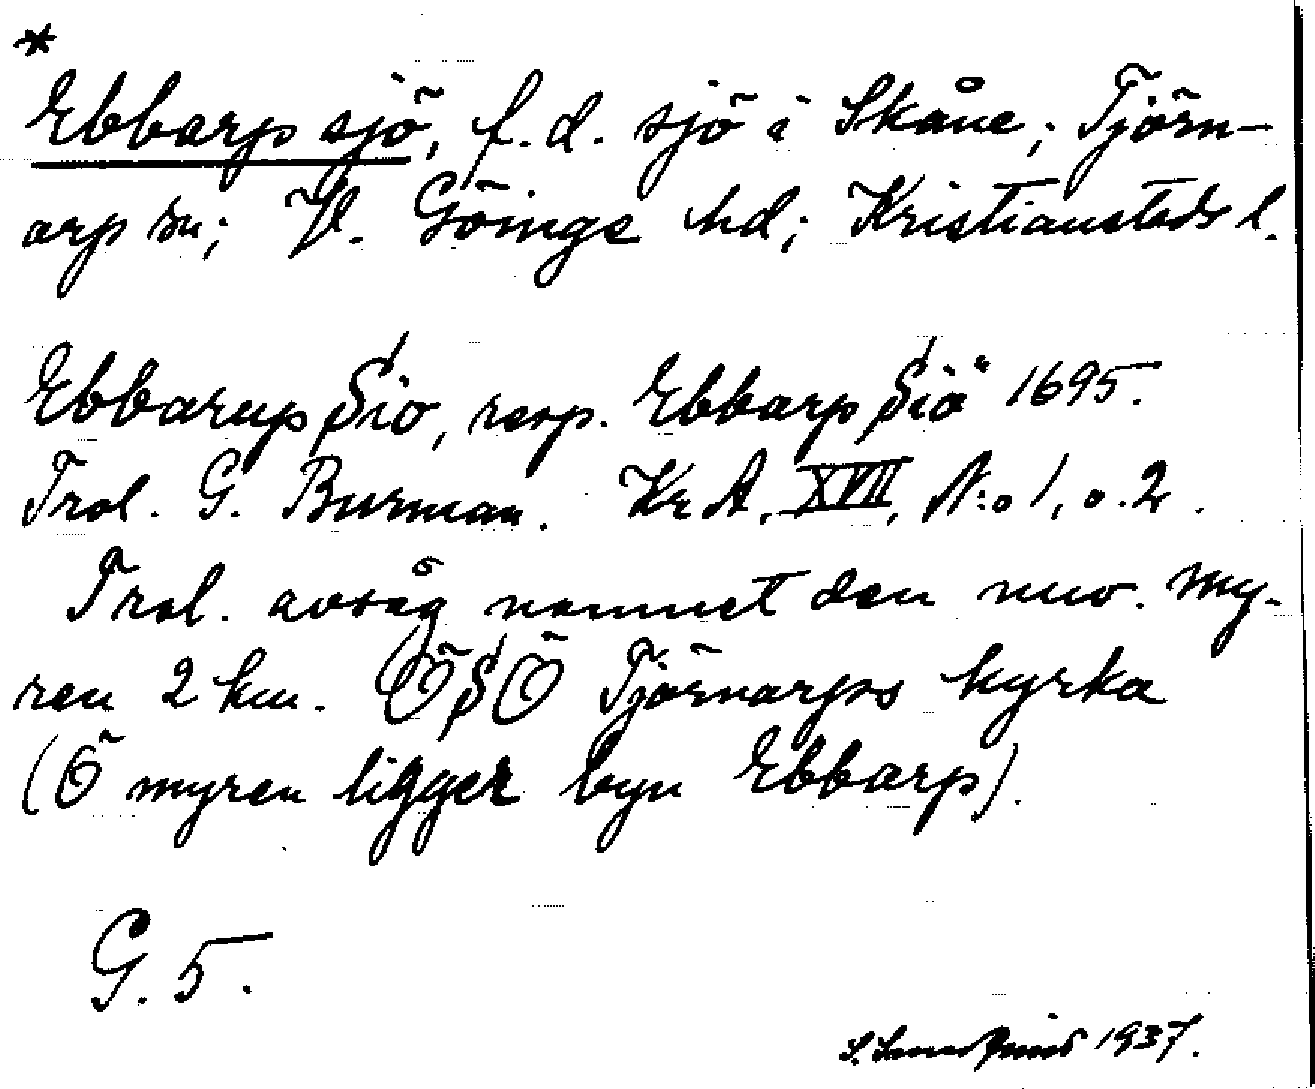 *
Ebbarp sjö, f. d. sjö i Skåne; Tjörn-
arp sn; V. Göinge hd; Kristianstads l.
Ebbarup Sio, resp. Ebbarp Siö 1695.
Trol. G. Burman. Kr A, XVII, N:o 1, o. 2.
Trol. avsåg namnet den nuv. my-
ren 2 km. ÖSÖ Tjörnarps kyrka
(Ö myren ligger byn Ebbarp).
G. 5.
1937.